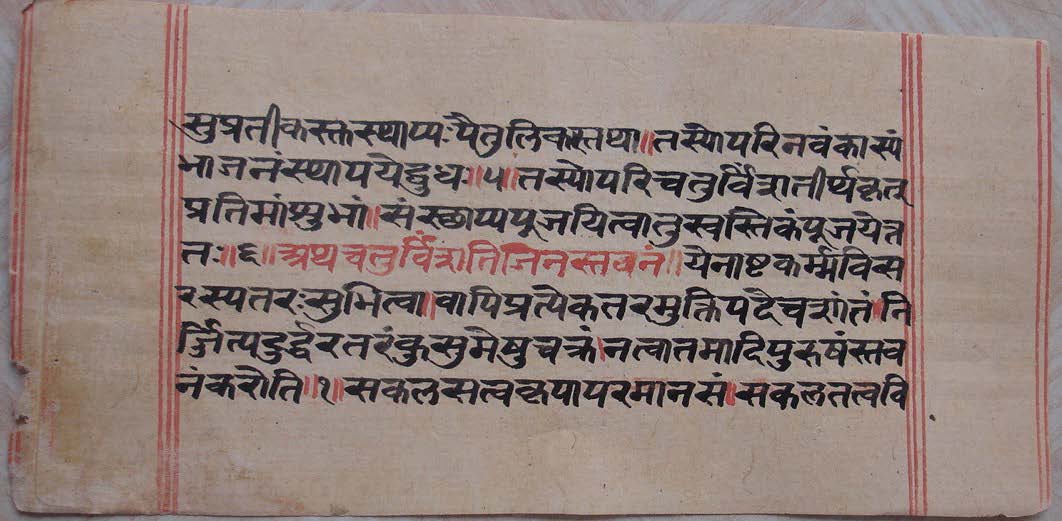 सुप्रतीकस्तस्थाप्यःपैतुलिकस्तथा॥तस्योपरिनवंकास्यं
भाजनंस्थापयेद्बुधः॥५॥तस्योपरिचतुर्विंशतीर्थकृत्
प्रतिमांशुभां॥संस्छाप्यपूजयित्वातुस्वस्तिकंपूजयेत
तः॥६॥अथचतुर्विंशतिजिनस्तवनं॥येनाष्टकर्म्मविस
रस्यतरःसुभित्वा।वापिप्रत्येकतरमुक्तिपदैचशांतं।नि
र्ज्जित्यदुर्द्धरतरंकुसुमेषुचक्रं।नत्वातमादिपुरुषंस्तव
नंकरोति॥१॥सकलसत्वकृपापरमानसं॥सकलतत्ववि